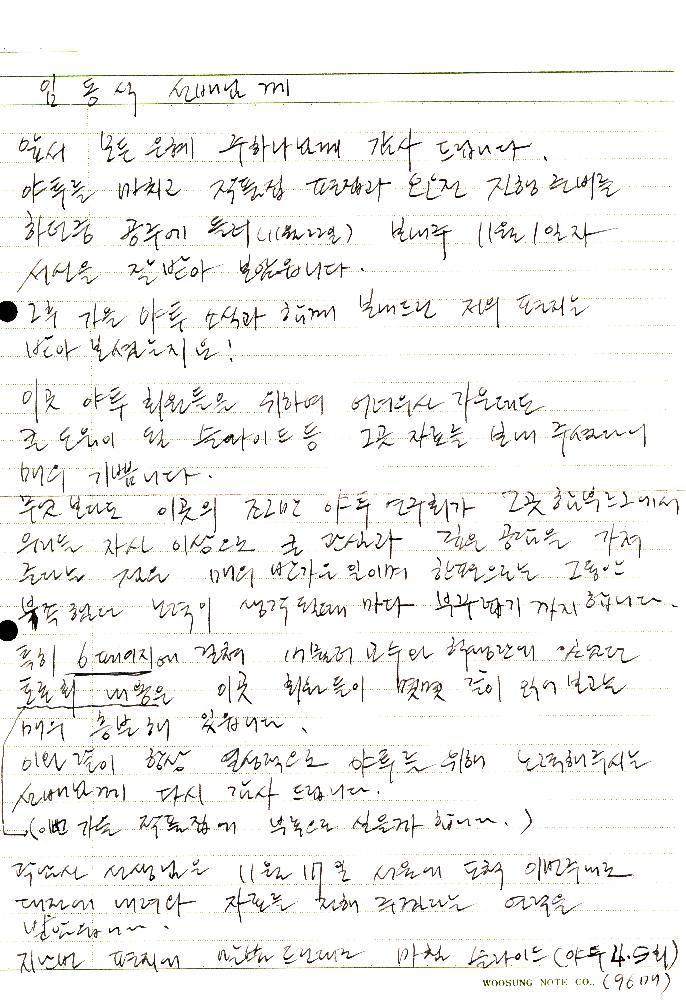 임동식 선배님께
앞서 모든 은혜 주하나님께 감사 드립니다.
야투를 마치고 작품집 편집과 완전 진행 준비를
하던중 공주에 들러 (11월22일) 보내주 11월 1일자
서신을 잘 받아 보았습니다.
그후 가을 야투 소식과 함께 보내드린 저의 편지는
받아 보셨는지요!
이곳 야투 회원들을 위하여 어려우신 가운데도
큰 도움이 될 슬라이드 등 그곳 자료를 보내 주셨다니
매우 기쁩니다.
무엇보다도 이곳의 조그만 야투 연구회가 그곳 함부르그에서
우리들 자신 이상으로 큰 관심과 깊은 공감을 가져
준다는 점은 매우 반가운 일이며 한편으로는 그동안
부족했던 노력이 생각될때 마다 부끄럽기 까지 합니다.
특히 6페이지에 걸쳐 교수와 학생간에 있었던
토론회 내용은 이곳 회원들이 몇몇 같이 읽어 보고는
매우 흥분해 있습니다.
이와 같이 항상 열성적으로 야투를 위해 노력해주시는
선배님께 다시 감사 드립니다.
(이번 가을 작품집에 부록으로 실을까 합니다.)
선생님은 11월 17일 서울에 도착 이번주내로
대전에 내려와 자료를 전해 주겠다는 연락을
받았습니다.
지난번 편지에 말씀드린대로 마침 슬라이드 (야투 4.5회)
(96매)
WOOSUNG NOTE CO.,